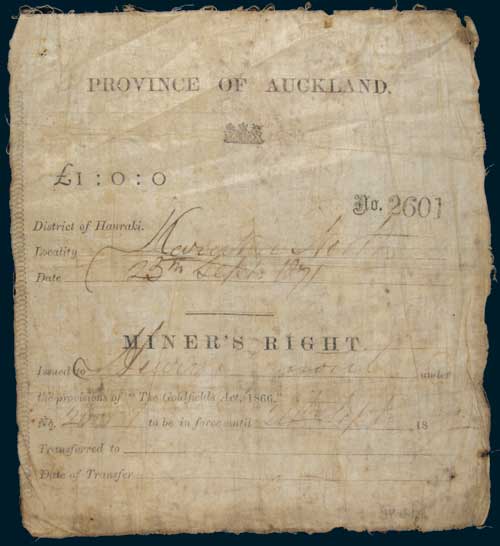 PROVINCE OF AUCKLAND.
£1 : 0 : 0
No. 2601
District of Hauraki.
Locality
Date 25th Sept 1871
MINER'S RIGHT.
Issued to under
the provisions of "The Goldfields Act, 1866."
No. to be in force until 18
Transferred to
Date of Transfer